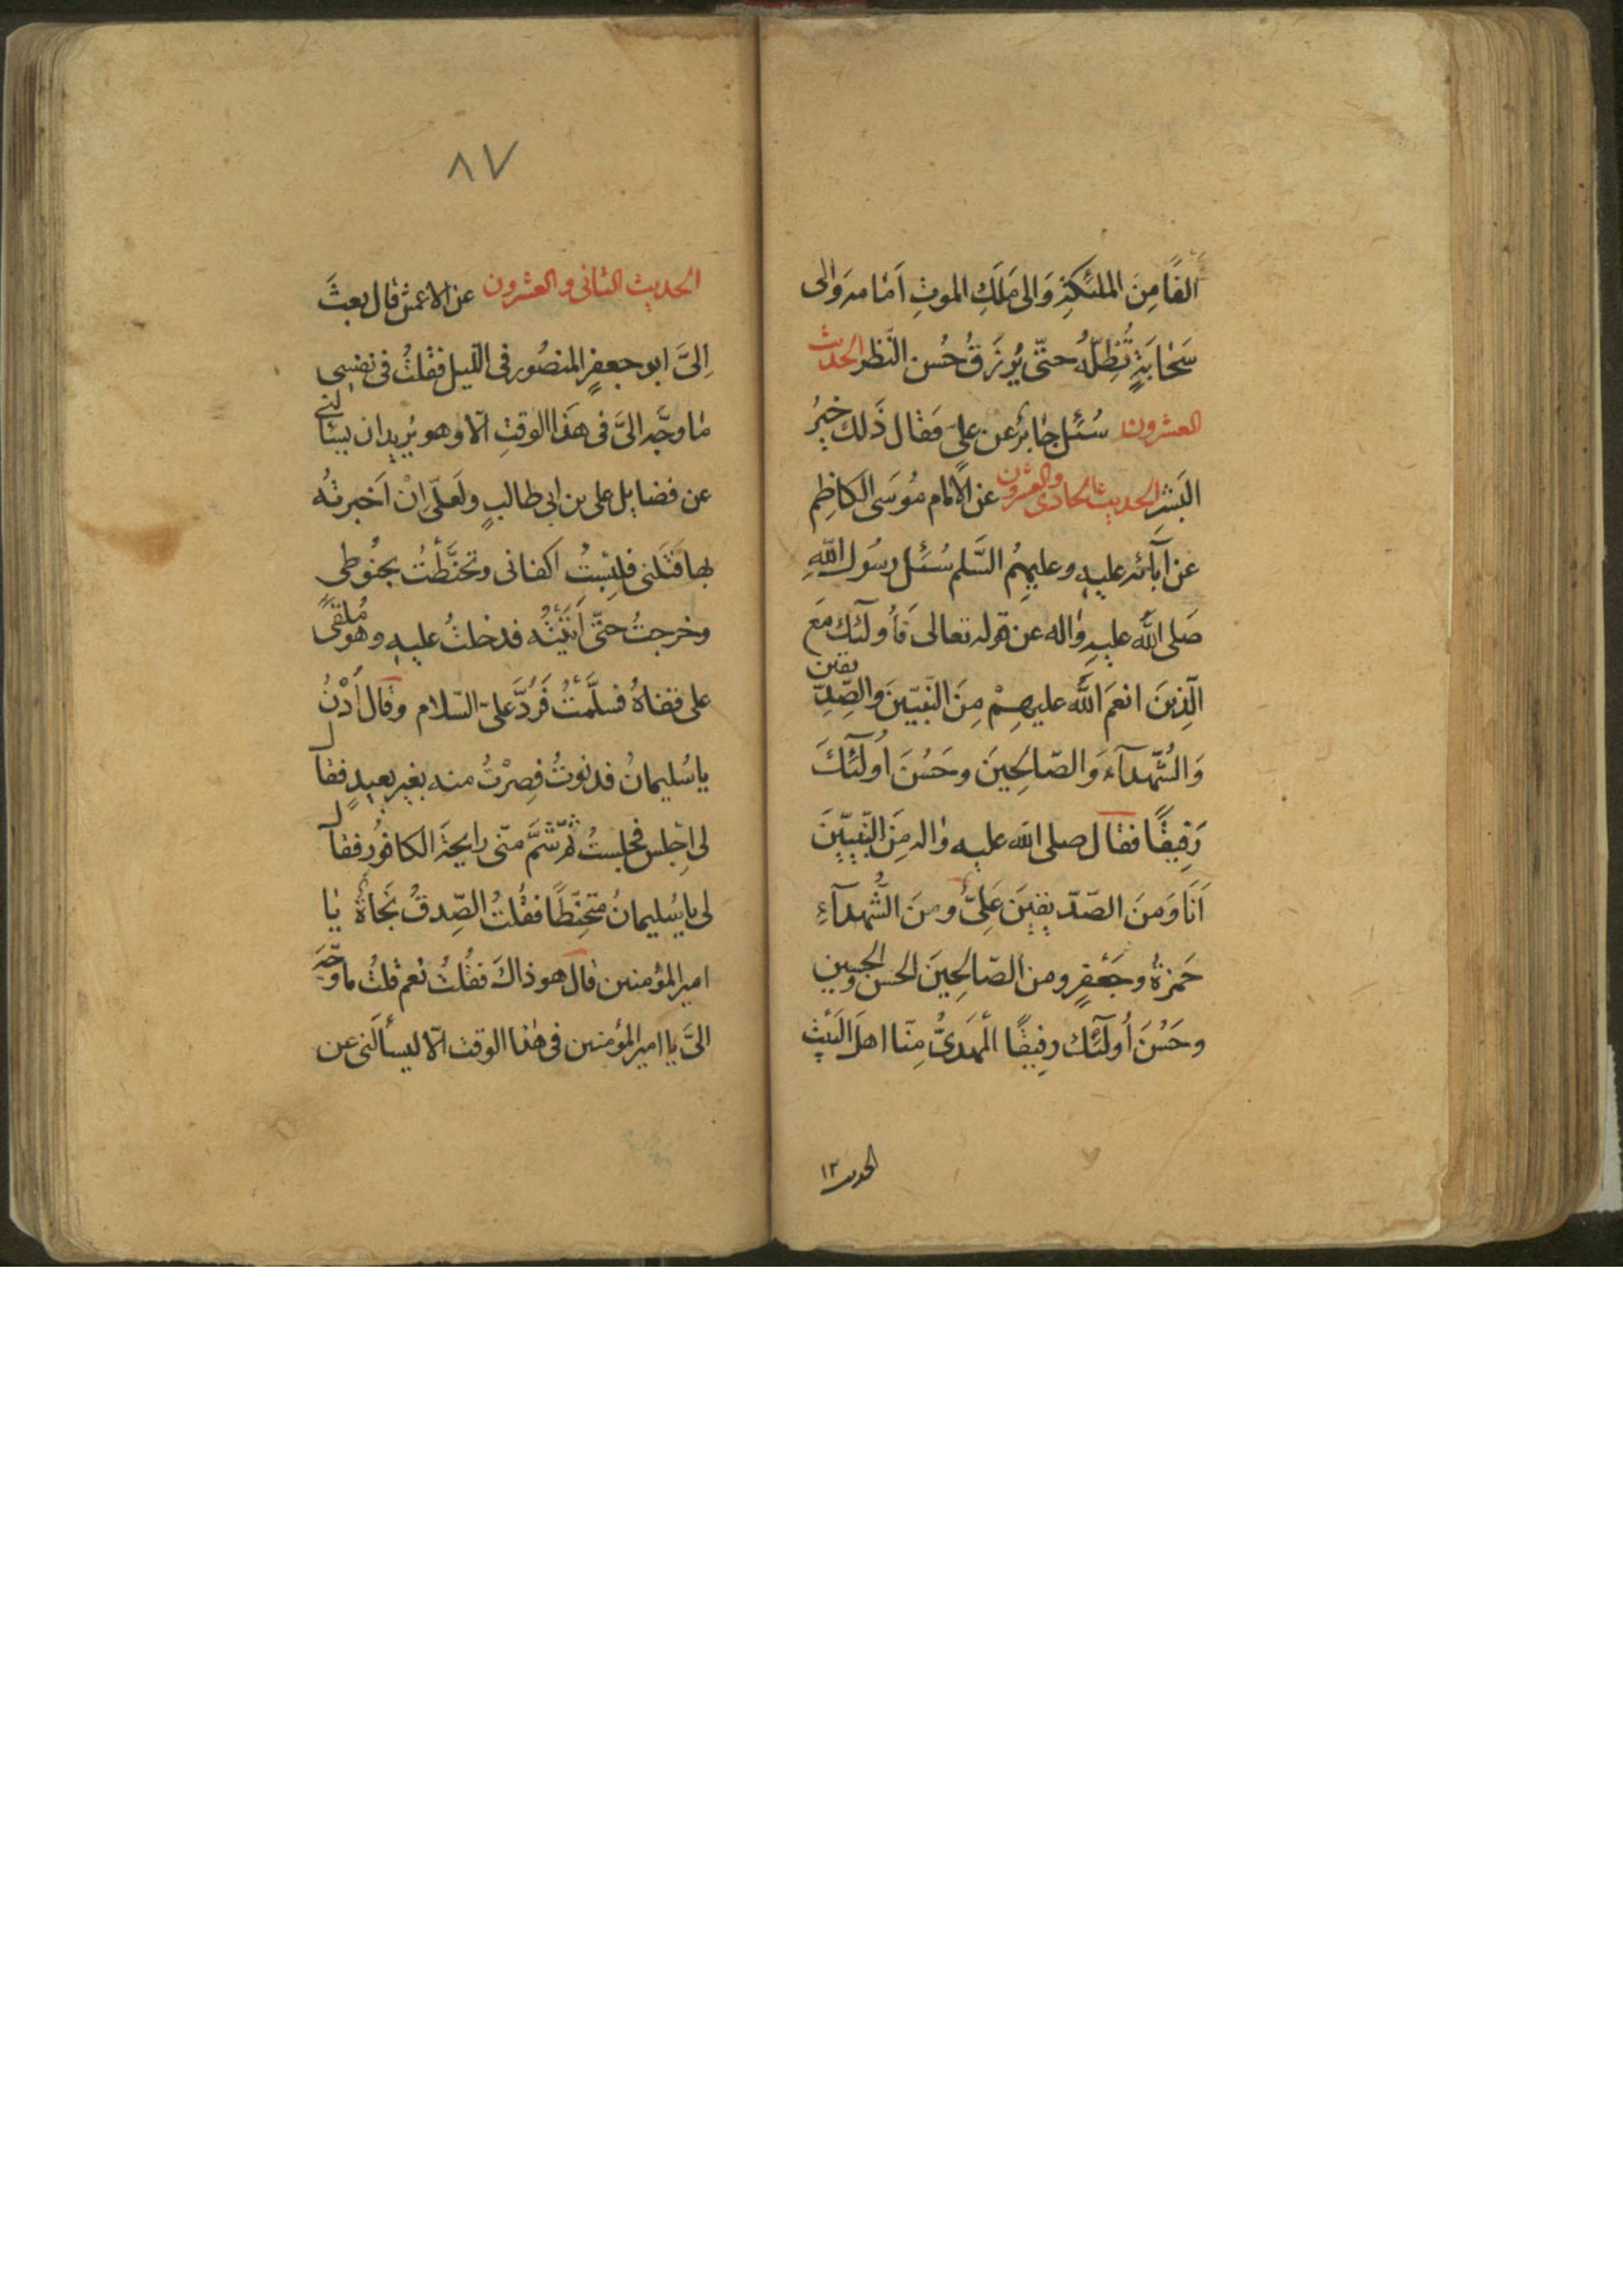 الفًا مِنَ الملئكةِ وَالى مَلَكِ الموتِ اَمَامه وَالى
سَحَابَةٍ تُظِلّهُ حتّى يُرزَقُ حُسن النّظر الحديث
العشرون سُئل جَابرٌ عن علىٍّ فَقال ذَلك خيرُ
البَشرِ الحديث الحادى والعشرون عن الامام مُوسَى الكاظِم
عن آبآئه عليه وعليهمُ السَّلم سُئل رسُول اللهِ
صَلى اللهُ عليهِ واله عن قوله تعالى فَأُولَئك مَعَ
الّذِينَ انعمَ اللهُ عليهِمْ مِنَ النَّبيّينَ والصِّدِّيقين
وَالشُّهدآءِ وَالصّالحِينَ وحَسُنَ اُولَئكَ
رَفِيقًا فقال صلى الله عليه واله مِنَ النَّبِيّينَ
اَنَا وَمِنَ الصّدّيقينَ عَلِىٌّ ومنَ الشُّهدآءِ
حَمزةُ وجَعْفرٍ ومن الصّالحِينَ الحسن والحسين
وحَسُنَ اُولَئك رفِيقًا المَهدىُّ مِنّا اهل البَيْتِ
الحديث ١٢
٨٧
الحديث الثانى والعشرون عن الاعمش قال بعثَ
اِلىَّ ابو جعفرٍ المنصُور فى الليل فقلتُ فى نفسِى
مَا وجّه الىَّ فى هَذا الوقتِ الّا وهو يُريد ان يسئالنى
عن فضايل على بن ابى طالبٍ ولَعلّى اِنْ اَخبرتُه
بها قَتَلنى فلبِستُ اكفانى وتحنَّطْتُ بحنُوطى
وخرجتُ حتّى اَتَيْتُه فدخلتُ عليه وهو مُلقىً
على قفاهُ فسلَّمْتُ فَردَّ علىّ السّلام وقال اُدْنُ
يا سُليمانُ فدنوتُ فصِرْتُ منه بغير بعيدٍ فقال
لى اِجلس فجلستُ ثمّ شمَّ منّى رايحةَ الكافُور فقال
لى يا سُليمانُ متحنِّطًا فقُلتُ الصِّدقُ نَجاةٌ يا
امير المؤمنين قال هو ذاكَ فقُلتُ نعم قلتُ ما وجّه
الىَّ يا امير المؤمنين فى هٰذا الوقت الّا ليسألَنى عن